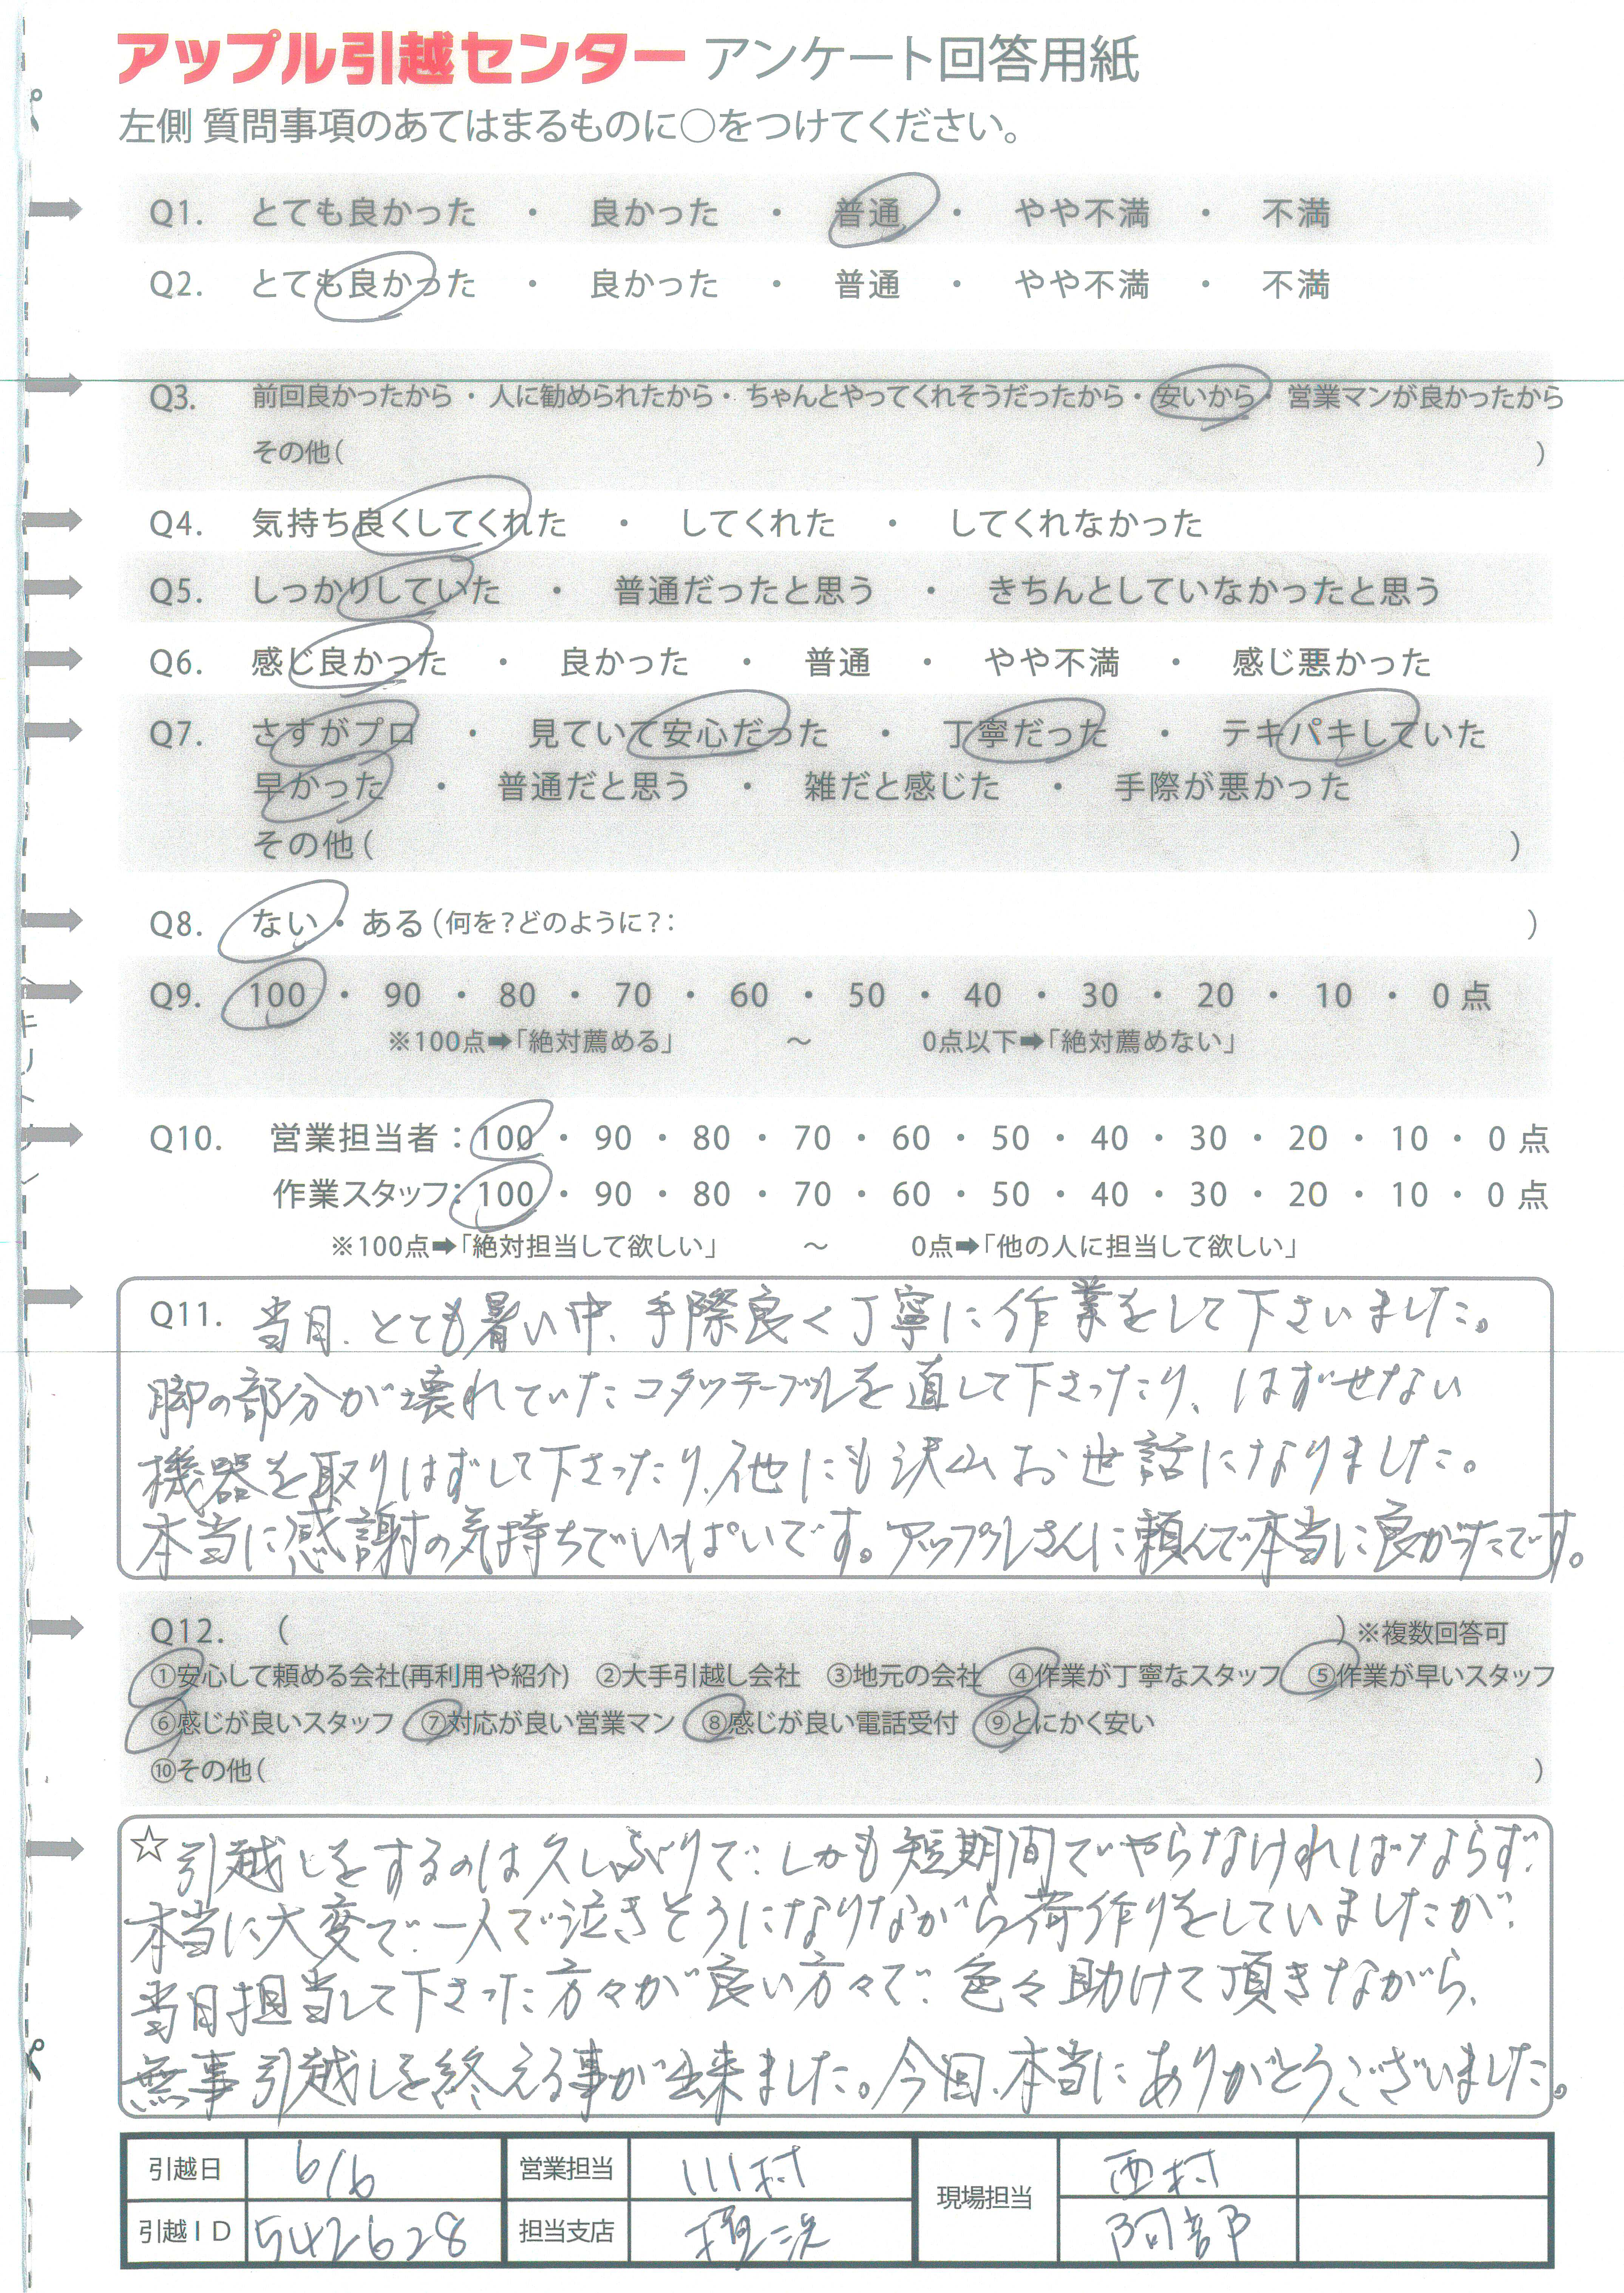 アップル引越センター アンケート回答用紙
左側 質問事項のあてはまるものに○をつけてください。
Q1. とても良かった ・ 良かった ・ 普通 ・ やや不満 ・ 不満
Q2. とても良かった ・ 良かった ・ 普通 ・ やや不満 ・ 不満
Q3. 前回良かったから・人に勧められたから・ちゃんとやってくれそうだったから・安いから・営業マンが良かったから
その他( )
Q4. 気持ち良くしてくれた ・ してくれた ・ してくれなかった
Q5. しっかりしていた ・ 普通だったと思う ・ きちんとしていなかったと思う
Q6. 感じ良かった ・ 良かった ・ 普通 ・ やや不満 ・ 感じ悪かった
Q7. さすがプロ ・ 見ていて安心だった ・ 丁寧だった ・ テキパキしていた
早かった ・ 普通だと思う ・ 雑だと感じた ・ 手際が悪かった
その他( )
Q8. ない・ある(何を?どのように?: )
Q9. 100 ・ 90 ・ 80 ・ 70 ・ 60 ・ 50 ・ 40 ・ 30 ・ 20 ・ 10 ・ 0点
※100点➡「絶対薦める」 ～ 0点以下➡「絶対薦めない」
Q10. 営業担当者:100 ・ 90 ・ 80 ・ 70 ・ 60 ・ 50 ・ 40 ・ 30 ・ 20 ・ 10 ・ 0点
作業スタッフ:100 ・ 90 ・ 80 ・ 70 ・ 60 ・ 50 ・ 40 ・ 30 ・ 20 ・ 10 ・ 0点
※100点➡「絶対担当して欲しい」 ～ 0点➡「他の人に担当して欲しい」
Q11. 当日、とても暑い中、手際良く丁寧に作業をして下さいました。
脚の部分が壊れていたコタツテーブルを直して下さったり、はずせない
機器を取りはずして下さったり、他にも沢山お世話になりました。
本当に感謝の気持ちでいっぱいです。アップルさんに頼んで本当に良かったです。
Q12. ( )※複数回答可
①安心して頼める会社(再利用や紹介) ②大手引越し会社 ③地元の会社 ④作業が丁寧なスタッフ ⑤作業が早いスタッフ
⑥感じが良いスタッフ ⑦対応が良い営業マン ⑧感じが良い電話受付 ⑨とにかく安い
⑩その他( )
☆引越しをするのは久しぶりで、しかも短期間でやらなければならず、
本当に大変で、一人で泣きそうになりながら荷作りをしていましたが、
当日担当して下さった方々が良い方々で、色々助けて頂きながら、
無事引越しを終える事が出来ました。今回、本当にありがとうございました。
引越日 6/6 営業担当 川村 現場担当 西村
引越ID 542628 担当支店 阿部
キリトリ